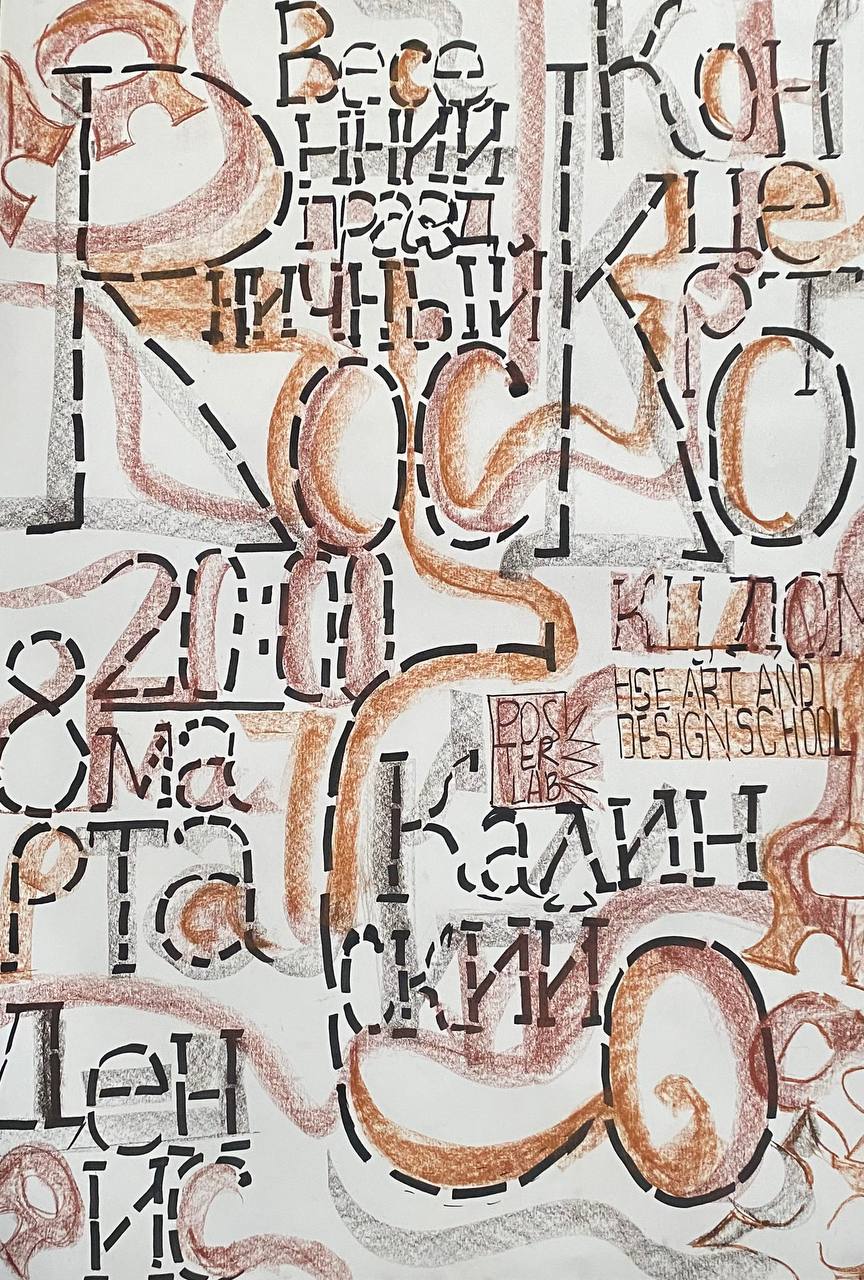 Весе
нний
празд
ничный
Кон
це
рт
RocKo
Co
20:00
8 ма
рта
КЦ ДОМ
HSE ART AND
DESIGN SCHOOL
POS
TER
LAB
Ден
ис
Калин
ский